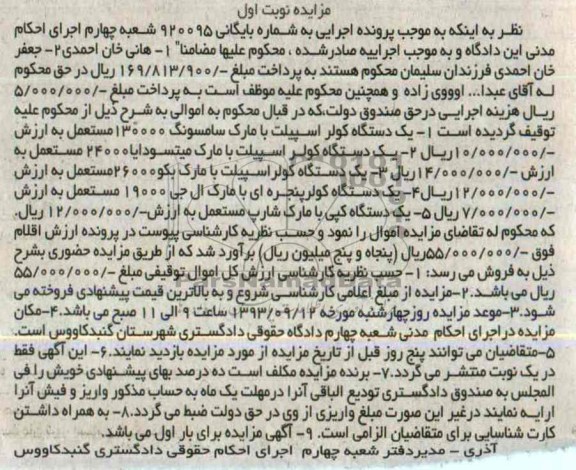 مزایده نوبت اول
نظر به اینکه به موجب پرونده اجرایی به شماره بایگانی ۹۲۰۰۹۵ شعبه چهارم اجرای احکام
مدنی این دادگاه و به موجب اجراییه صادرشده ، محکوم علیها مضامنا" ۱- هانی خان احمدی۲- جعفر
خان احمدی فرزندان سلیمان محکوم هستند به پرداخت مبلغ -/۱۶۹/۸۱۳/۹۰۰ ریال در حق محکوم
له آقای عبدا... اوووی زاده و همچنین محکوم علیه موظف است به پرداخت مبلغ -/۵/۰۰۰/۰۰۰
ریال هزینه اجرایی درحق صندوق دولت،که در قبال محکوم به اموالی به شرح ذیل از محکوم علیه
توقیف گردیده است ۱- یک دستگاه کولر اسپیلت با مارک سامسونگ ۱۳۰۰۰۰مستعمل به ارزش
-/۱۰/۰۰۰/۰۰۰ریال ۲- یک دستگاه کولر اسپیلت با مارک میتسودایا۲۴۰۰۰ مستعمل به
ارزش -/۱۴/۰۰۰/۰۰۰ریال ۳- یک دستگاه کولراسپیلت با مارک بکو۲۶۰۰۰مستعمل به ارزش
-/۱۲/۰۰۰/۰۰۰ریال۴- یک دستگاه کولرپنجره ای با مارک ال جی ۱۹۰۰۰ مستعمل به ارزش
-/۷/۰۰۰/۰۰۰ ریال ۵- یک دستگاه کپی با مارک شارپ مستعمل به ارزش-/۱۲/۰۰۰/۰۰۰ ریال.
که محکوم له تقاضای مزایده اموال را نمود و حسب نظریه کارشناسی پیوست در پرونده ارزش اقلام
فوق -/۵۵/۰۰۰/۰۰۰ریال (پنجاه و پنج میلیون ریال) برآورد شد که از طریق مزایده حضوری بشرح
ذیل به فروش می رسد: ۱- حسب نظریه کارشناسی ارزش کل اموال توقیفی مبلغ -/۵۵/۰۰۰/۰۰۰
ریال می باشد.۲-مزایده از مبلغ اعلامی کارشناسی شروع و به بالاترین قیمت پیشنهادی فروخته می
شود.۳-موعد مزایده روزچهارشنبه مورخه ۱۳۹۳/۰۹/۱۲ ساعت ۹ الی ۱۱ صبح می باشد.۴-مکان
مزایده در اجرای احکام مدنی شعبه چهارم دادگاه حقوقی دادگستری شهرستان گنبدکاووس است.
۵-متقاضیان می توانند پنج روز قبل از تاریخ مزایده از مورد مزایده بازدید نمایند.۶- این آگهی فقط
در یک نوبت منتشر می گردد.۷- برنده مزایده مکلف است ده درصد بهای پیشنهادی خویش را فی
المجلس به صندوق دادگستری تودیع الباقی آنرا درمهلت یک ماه به حساب مذکور واریز و فیش آنرا
ارایه نمایند درغیر این صورت مبلغ واریزی از وی در حق دولت ضبط می گردد.۸- به همراه داشتن
کارت شناسایی برای متقاضیان الزامی است. ۹- آگهی مزایده برای بار اول می باشد.
آذری - مدیردفتر شعبه چهارم اجرای احکام حقوقی دادگستری گنبدکاووس